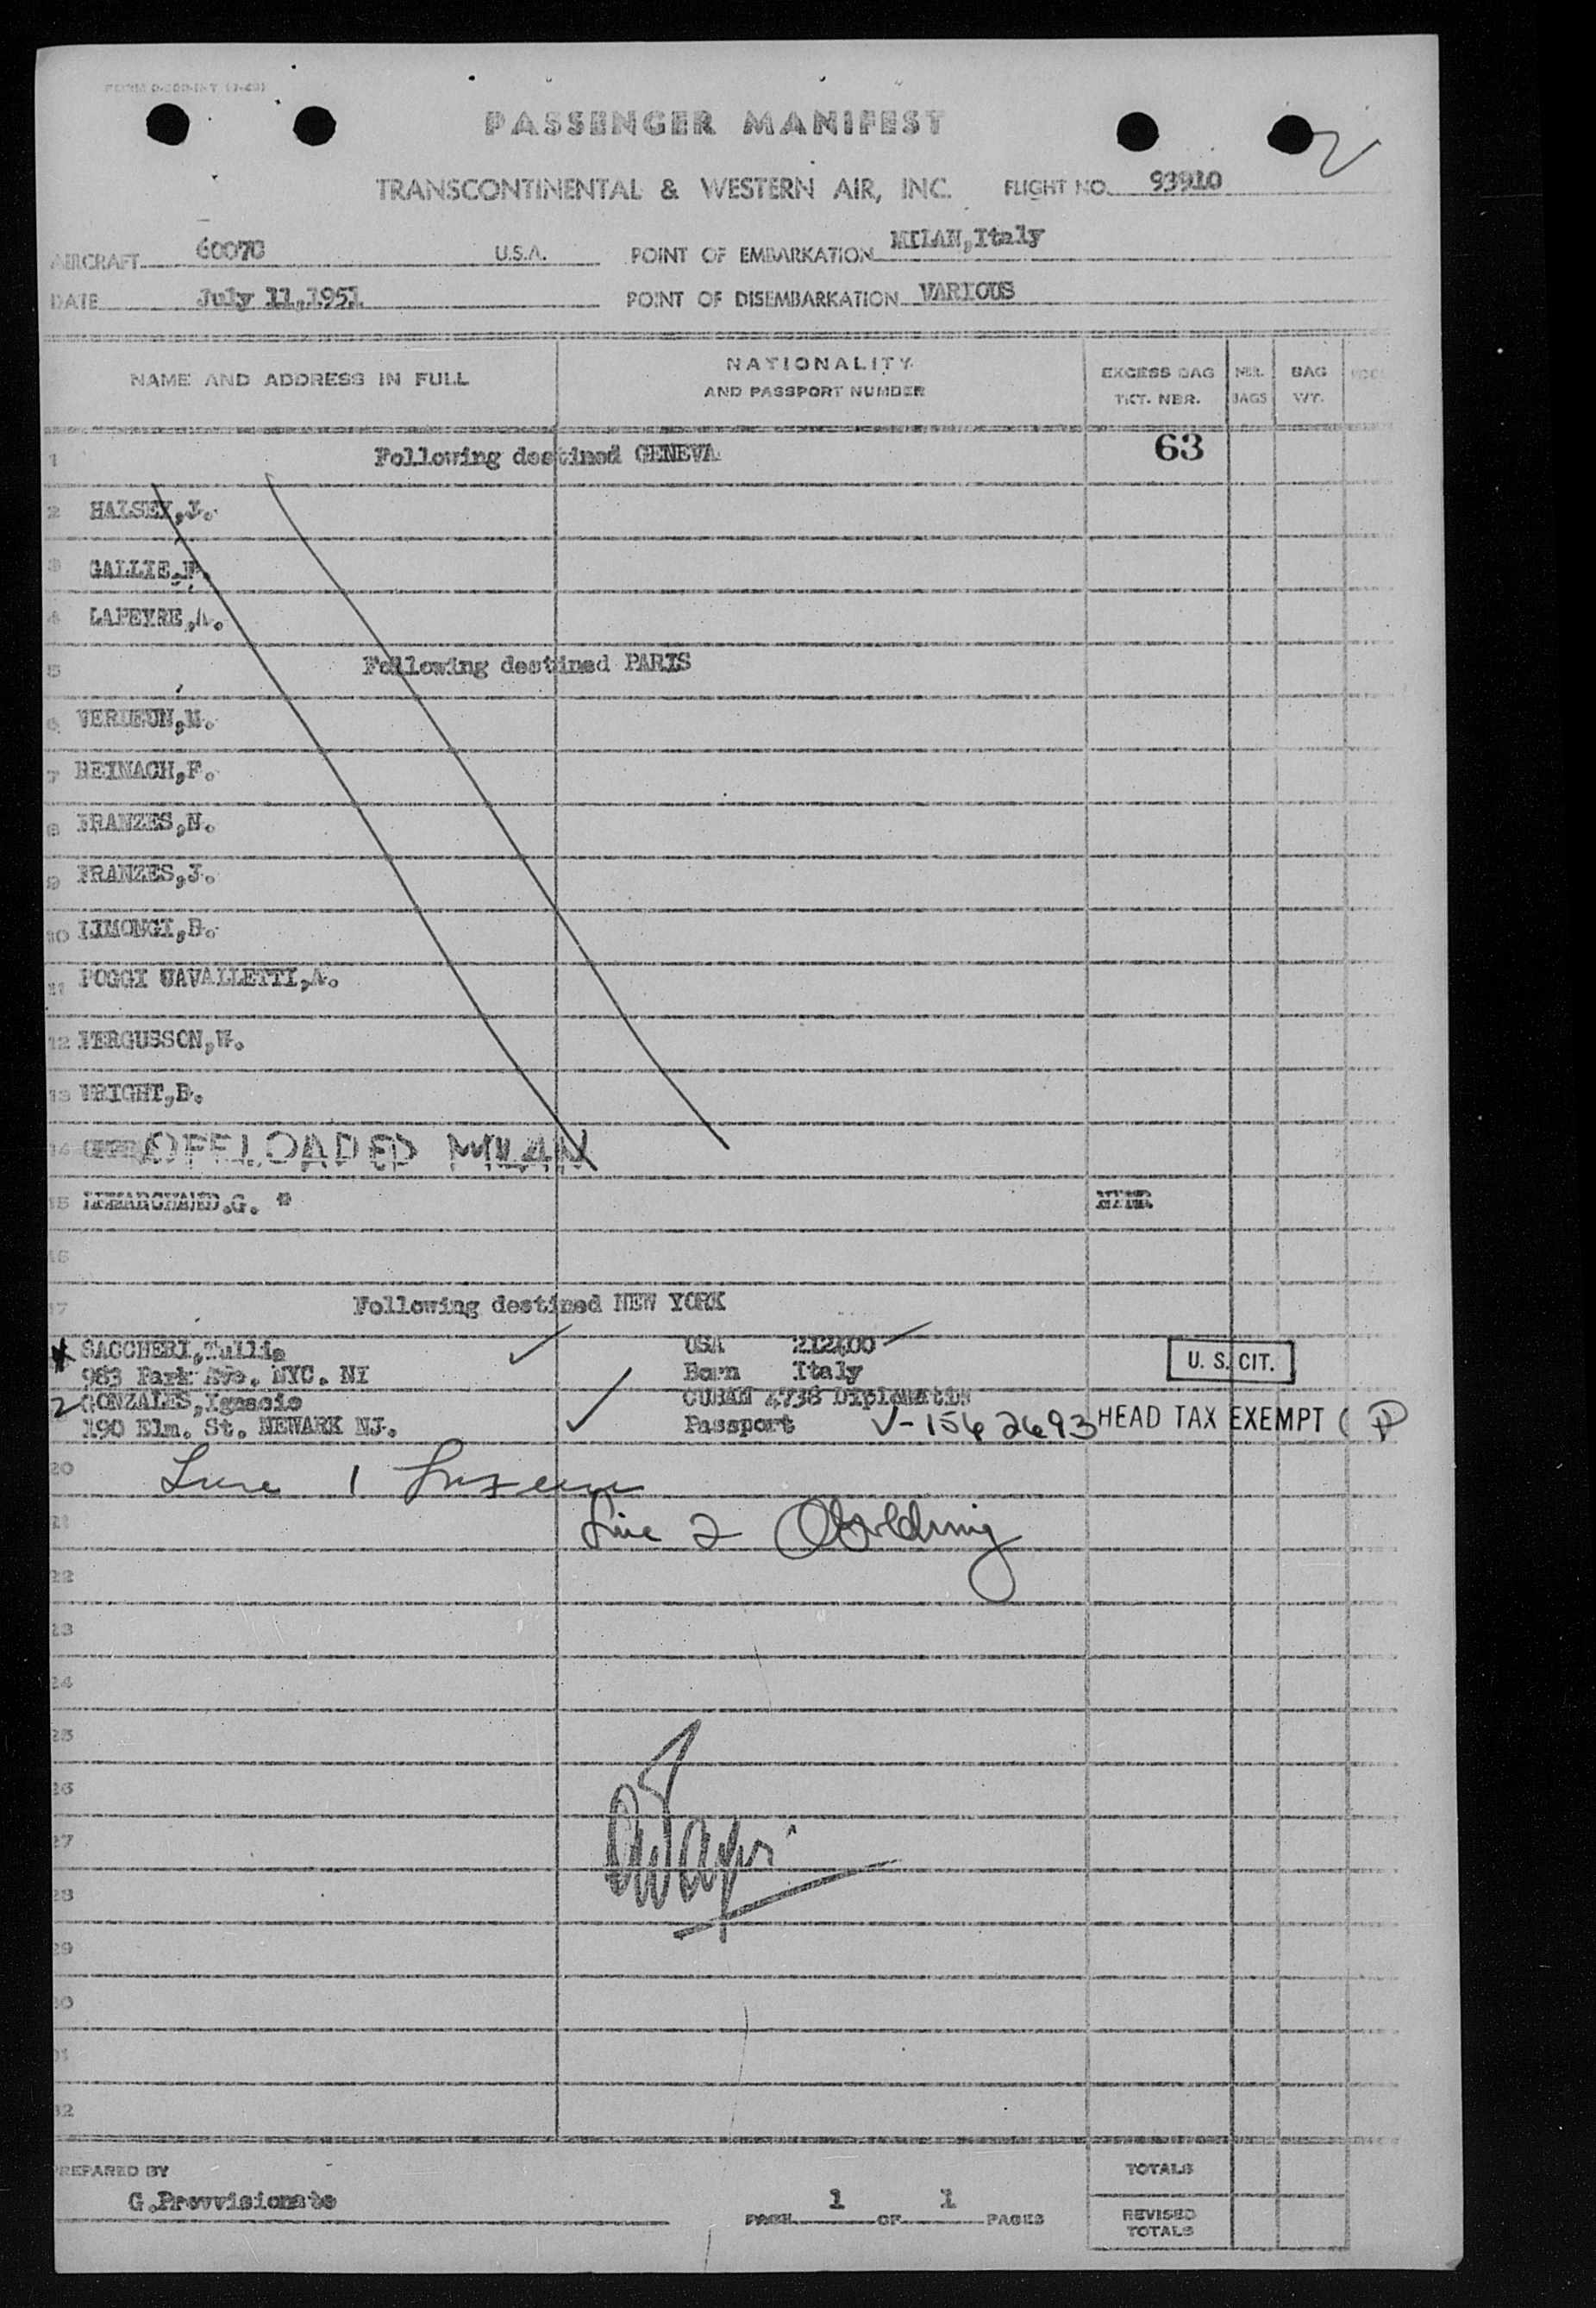 PASSENGER MANIFEST
2
TRANSCONTINENTAL & WESTERN AIR, INC. FLIGHT NO. 93910
AIRCRAFT 6007C U.S.A. POINT OF EMBARKATION MILAN,Italy
DATE July 11,1951 POINT OF DISEMBARKATION VARIOUS
NAME AND ADDRESS IN FULL
NATIONALITY
AND PASSPORT NUMBER
EXCESS BAG
TKT. NBR.
NBR.
BAGS
BAG
WT.
1 Following destined GENEVA 63
2 HALSEY,J.
3 GALLIE,F.
4 LAPEYRE,A.
5 Following destined PARIS
6 VERDEUN,M.
7 REINACH,F.
8 FRANZES,N.
9 FRANZES,J.
10 LIMONGI,B.
11 POGGI CAVALLETTI,A.
12 FERGUSSON,W.
13 WRIGHT,B.
14 OFFLOADED MILAN
15 LEMARCHAND.G.
16
17 Following destined NEW YORK
SACCHERI,Tullia USA 212400
983 Park Ave. NYC. NY Born Italy U. S. CIT.
2 GONZALES,Ignacio CUBAN 4738 Diplomatic
190 Elm. St. NEWARK NJ. Passport V-1562693 HEAD TAX EXEMPT (
20 Line 1
21 Line 2
22
23
24
25
26
27
28
29
30
31
32
PREPARED BY
G.Provvisionato
PAGE 1 OF 1 PAGES
TOTALS
REVISED
TOTALS